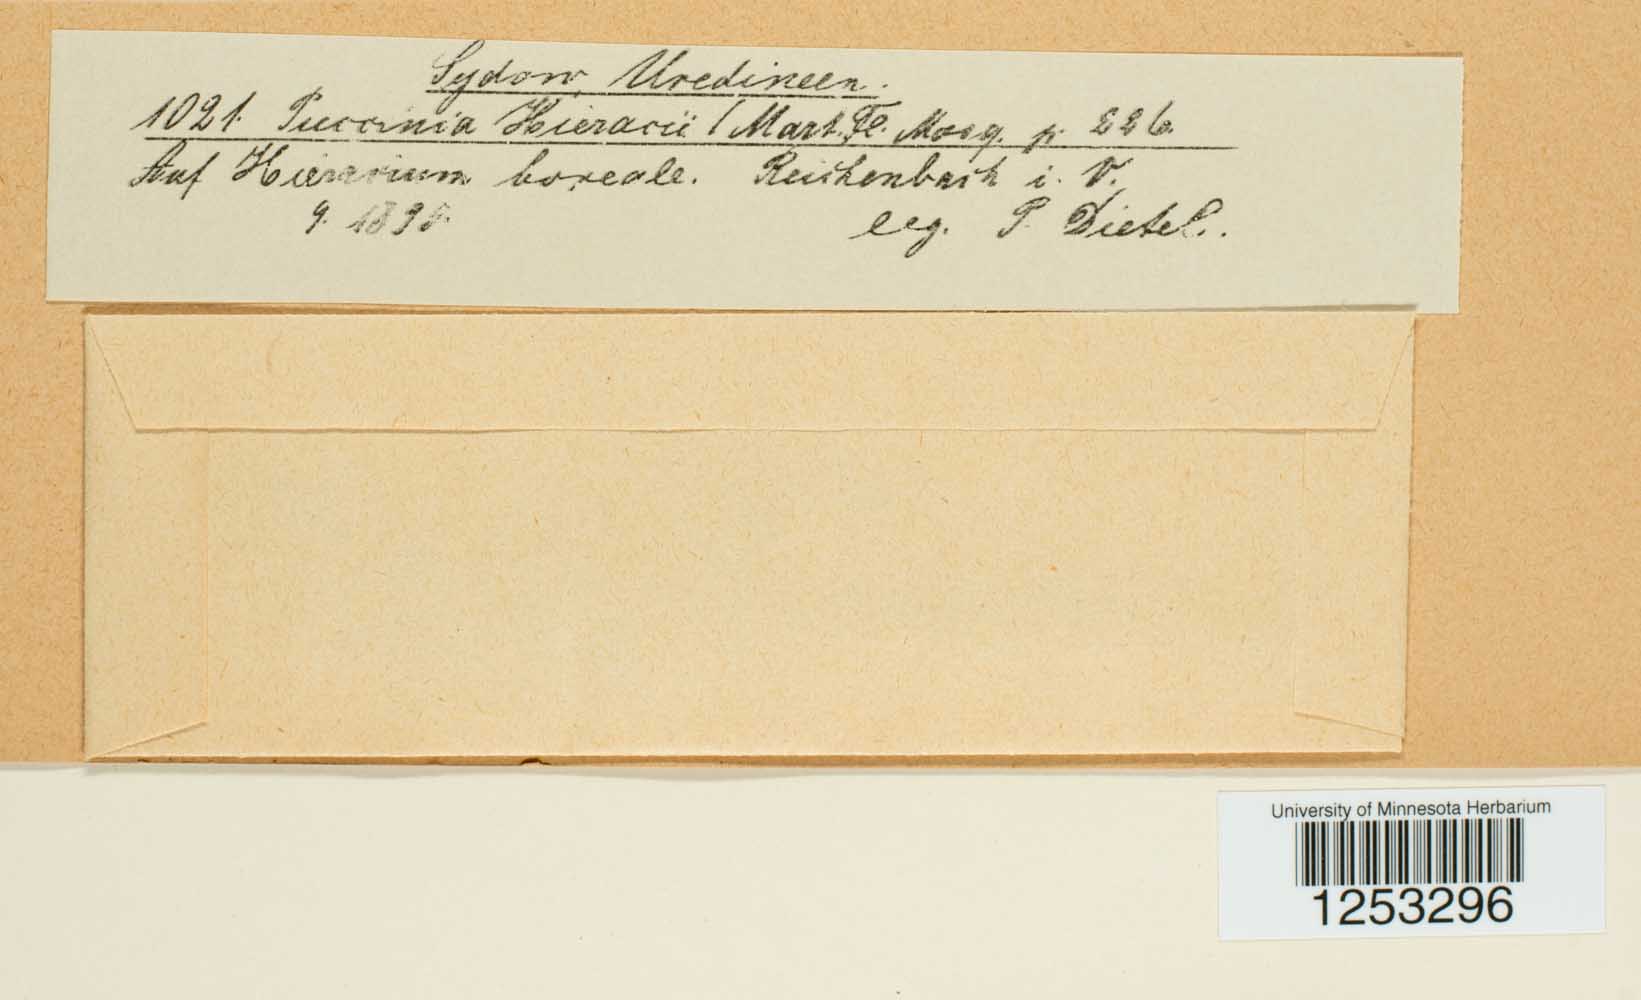 Sydow, Uredineen.
1021. Puccinia Hieracii (Mart. Fl. Mosq. p. 226.
Auf Hieracium boreale. Reichenbach i. V.
9. 1895. leg. P. Dietel.
University of Minnesota Herbarium
1253296